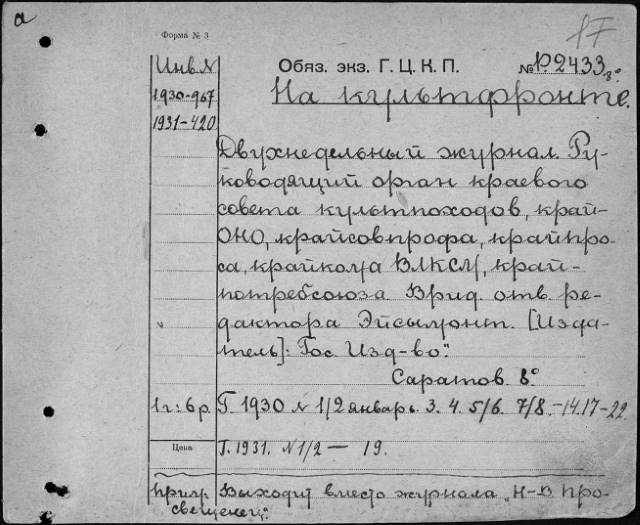 а
17
Форма № 3
Инв.№ Обяз. экз. Г. Ц. К. П. № Р.2433 8°
1930-967 На культфронте.
1931-420
Двухнедельный журнал. Ру-
ководящий орган краевого
совета культпоходов, край-
ОНО, крайсовпрофа, крайпро-
са, крайкома ВЛКСМ, край-
потребсоюза. Врид. отв. ре-
№ дактора Эйсымонт. [Изда-
тель]: Гос. Изд-во".
Саратов. 8°
1 г: 6 р. Г. 1930 № 1/2 январь. 3. 4. 5/6. 7/8.-14.17-22
Цена Г. 1931. № 1/2 — 19.
Прим. Выходит вместо журнала „Н-В Про-
свещенец".